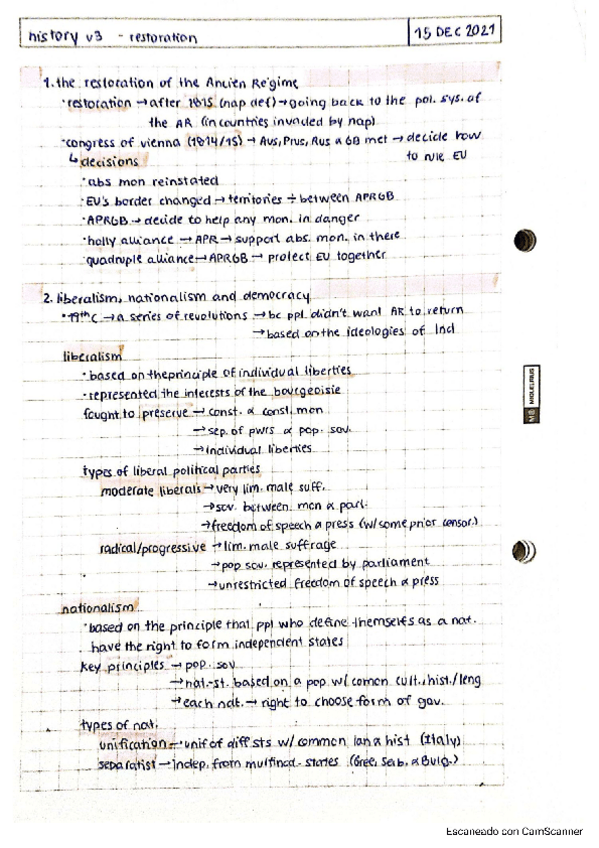 history v3 - restoration
15 DEC 2021
1. the restoration of the Ancien Régime
· restoration → after 1815 (nap def) → going back to the pol. sys. of
the AR (in countries invaded by nap)
· congress of vienna (1814/15) → Aus, Prus, Rus & GB met → decide how
to rule EU
↳ decisions
· abs mon reinstated
· EU's border changed → territories ÷ between APRGB
· APRGB → decide to help any mon. in danger
· holly alliance → APR → support abs. mon. in there
· quadruple alliance → APRGB → protect EU together
2. liberalism, nationalism and democracy
· 19th C → a series of revolutions → bc ppl. didn't want AR to return
→ based on the ideologies of
liberalism
· based on the principle of individual liberties
· represented the interests of the bourgeoisie
fought to preserve → const. & const. mon
→ sep. of pwrs & pop. sov.
→ individual liberties
types of liberal political parties
moderate liberals → very lim. male suff.
→ sov. between mon & parl.
→ freedom of speech & press (w/ some prior censor.)
radical/progressive → lim. male suffrage
→ pop sov. represented by parliament
→ unrestricted freedom of speech & press
nationalism
· based on the principle that ppl who define themselves as a nat.
have the right to form independent states
key principles → pop. sov
→ nat.-st. based on a pop w/ comon cult., hist./leng
→ each nat. → right to choose form of gov.
types of nat.
unification → unif of diff sts w/ common lan & hist (Italy)
separatist → indep. from multinat. states (Gree, Serb. & Bulg.)
MIQUELRIUS
Escaneado con CamScanner